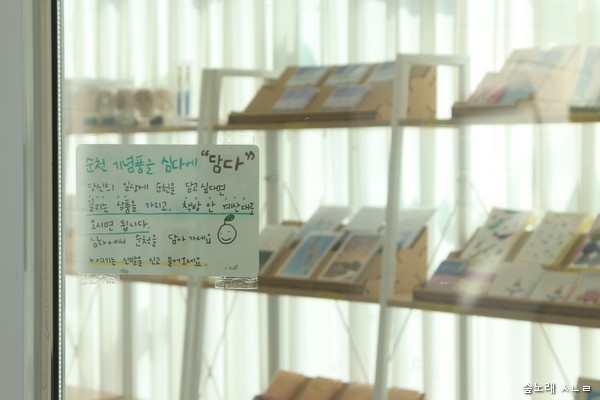 순천 기념품을 심다에 “담다”
당신의 일상에 순천을 담고 싶다면
끌리는 상품을 가지고, 책방 안 계산대로
오시면 됩니다.
심다에서 순천을 담아 가세요
* 여기는 신발을 신고 들어오세요
숲노래 ㅅㄴㄹ